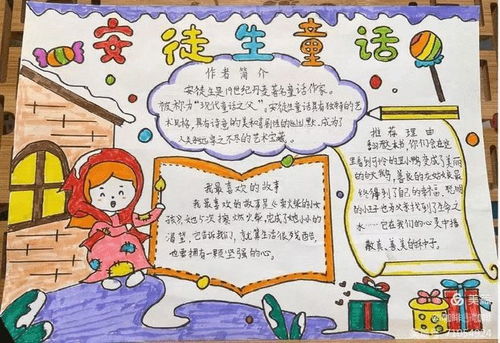 安徒生童话
作者简介
安徒生是19世纪丹麦著名童话作家。
被称为“现代童话之父”。安徒生童话具有独特的艺
术风格,具有诗意的美和喜剧性的幽默,成为了
人类
艺术宝藏。
我最喜欢的故事
我最喜欢的故事是《卖火柴的小女
孩》
擦燃火柴,完成了她小小的
渴望。它告诉我们,就算生活很残酷,
也要拥有一颗坚强的心。
推荐理由
翻开本书,你们会在这
里看到可怜的丑小鸭变成了美丽
的大天鹅,善良的
姑娘最
终得到了自己的幸福,
的小王子也
找到了
水……它在我们的心灵中播
散真、善、美的种子。
美